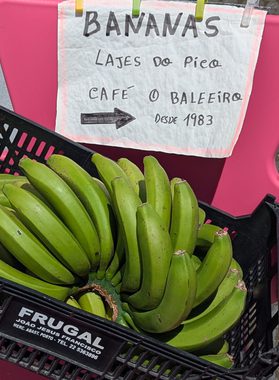 BANANAS
LAJES DO PICO
CAFÉ O BALEEIRO
DESDE 1983
FRUGAL
JOÃO JESUS FRANCISCO
MERC. ABAST. PORTO - TEL. 22 5363896